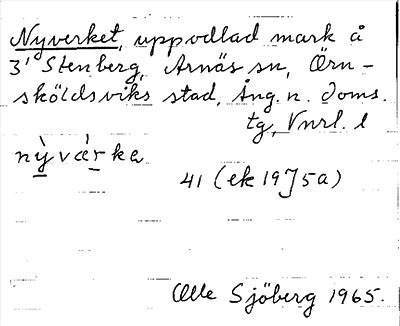 Nyverket, uppodlad mark å
3¹ Stenberg, Arnäs sn, Örn-
sköldsviks stad, Ång. n. doms.
tg, Vnrl. l
ny̆̀várka
41 (ek 19J5a)
Olle Sjöberg 1965.